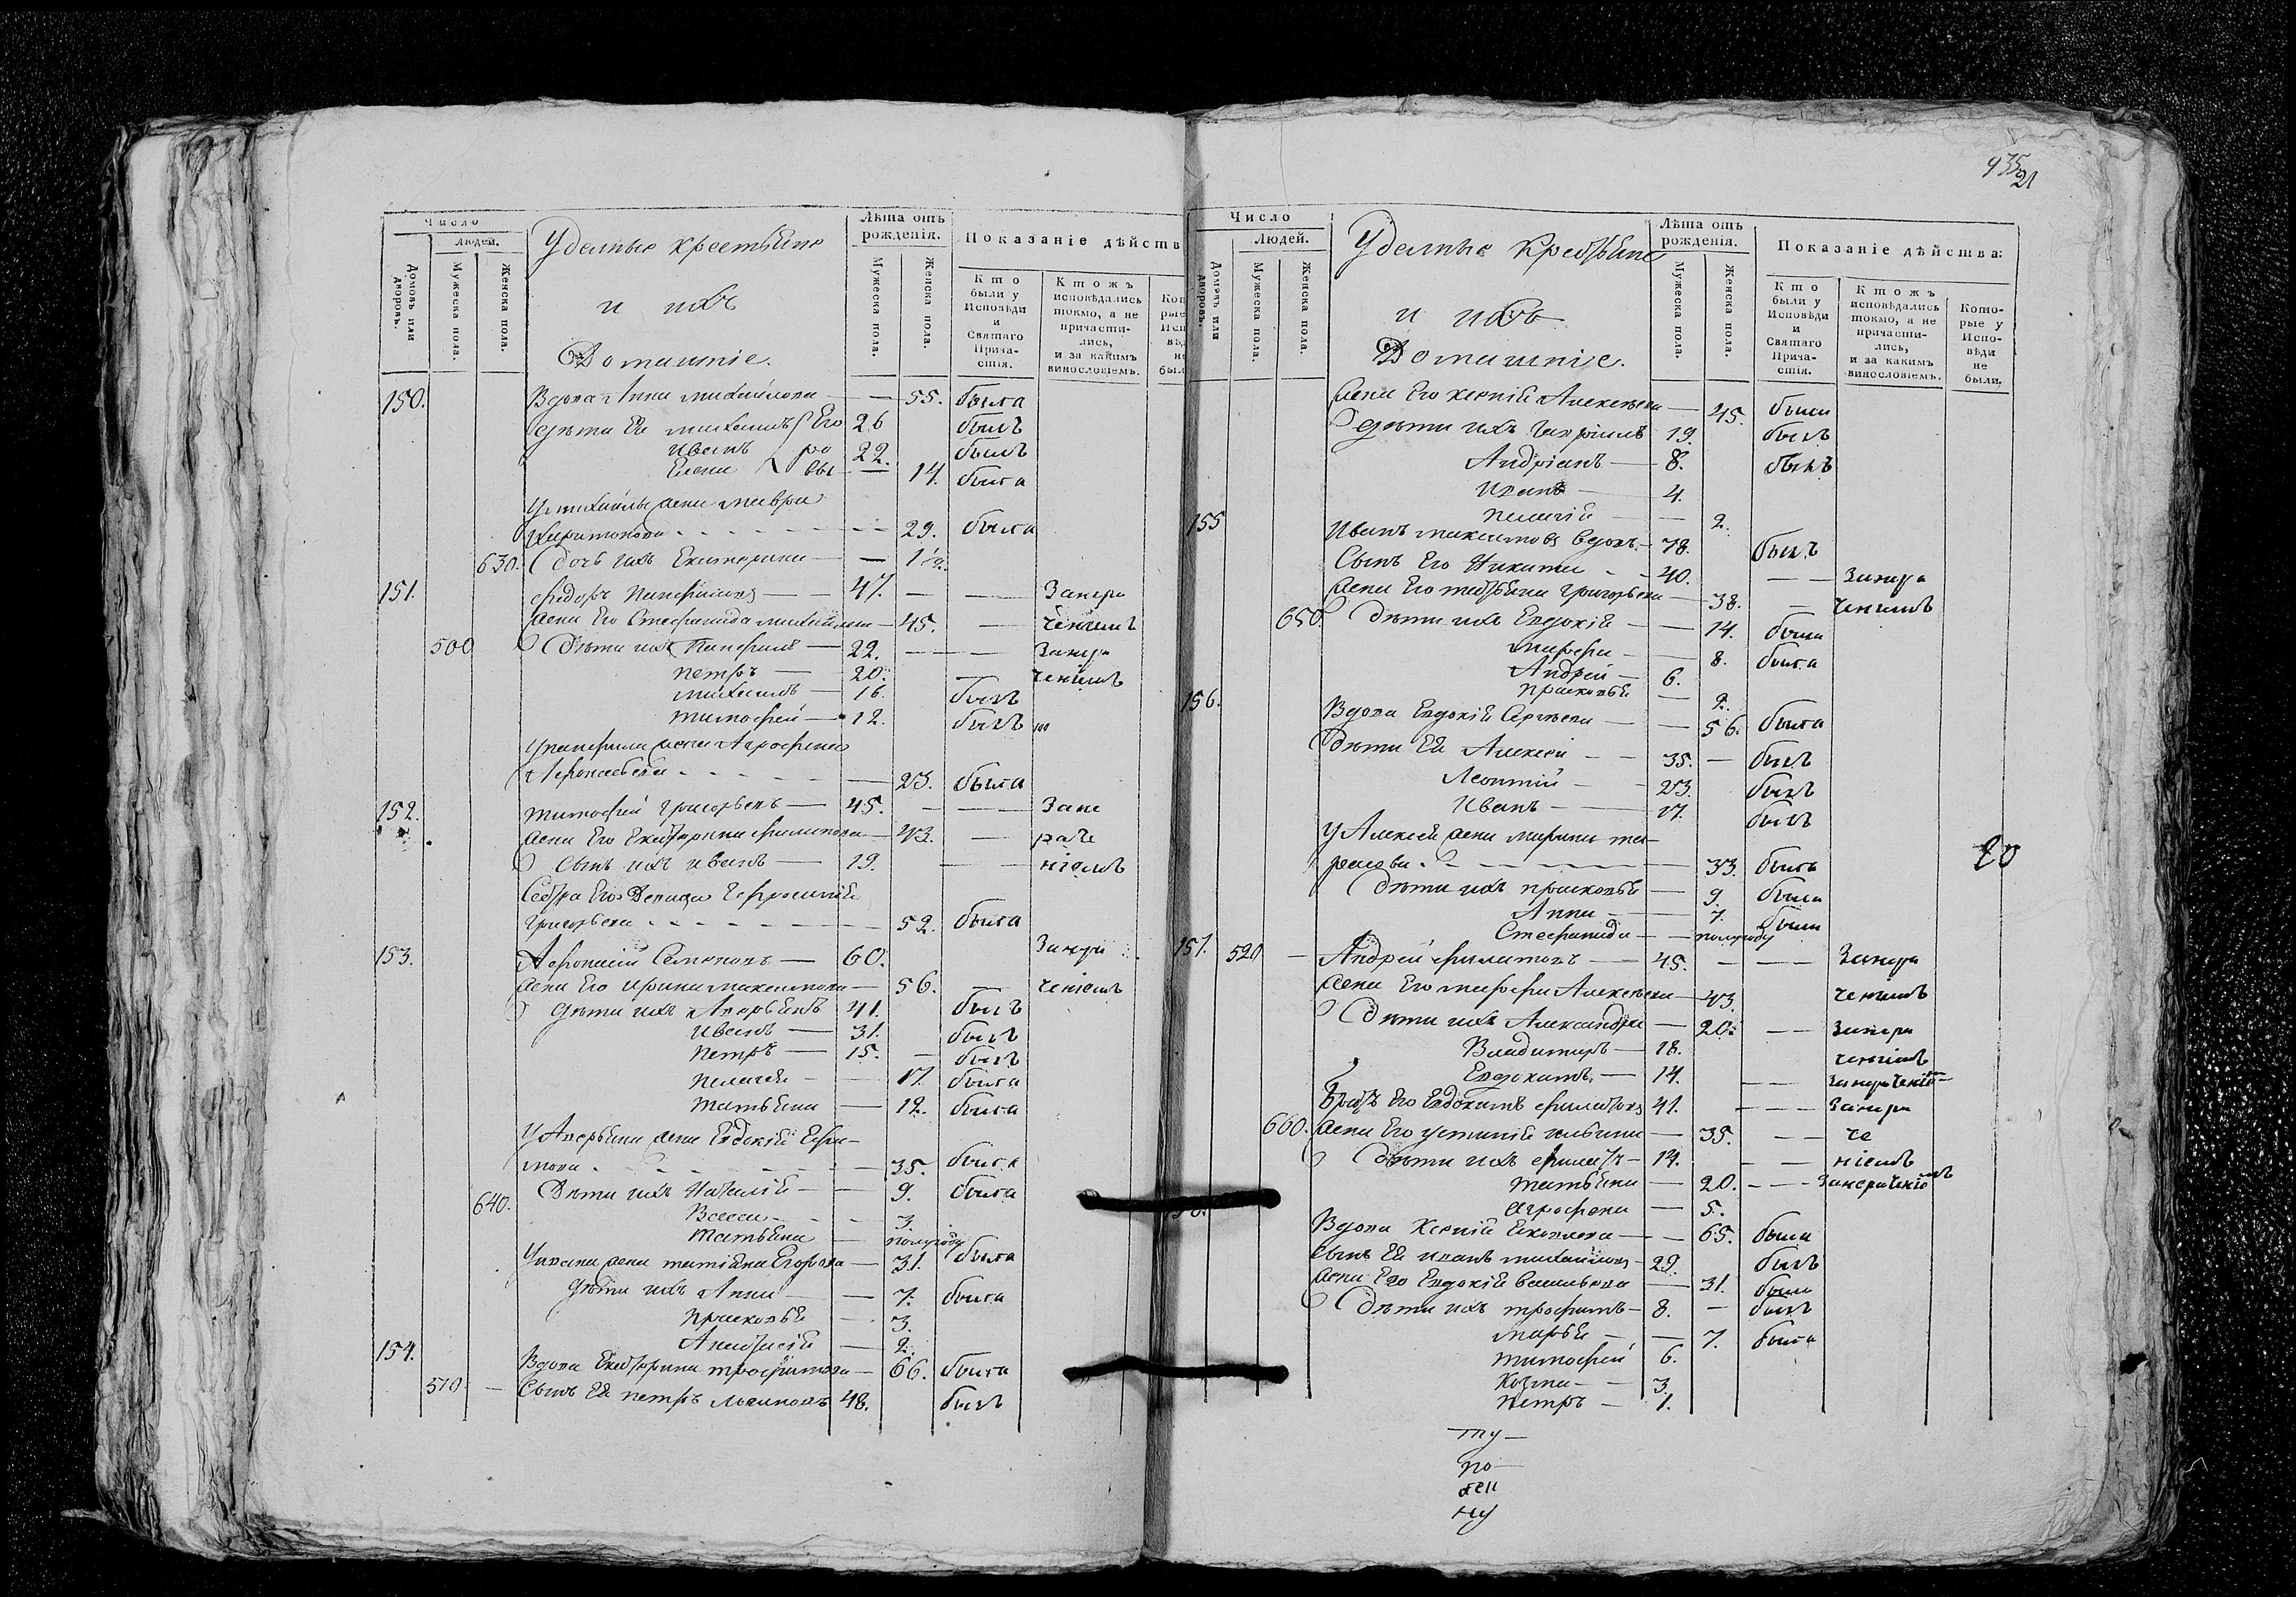 Число
Людей.
Домовъ или дворовъ.
Мужеска пола.
Женска пола.
Удельные крестьяне
и ихъ
Домашніе.
Лѣта отъ рожденія.
Мужеска пола.
Женска пола.
Показаніе дѣйств
Кто были у Исповѣди и Святаго Прича-стія.
Ктожъ исповѣдались токмо, а не причасти-лись, и за какимъ винословіемъ.
150. Вдова Анна Михайлова — 55. была
дѣти Ея Михаилъ Его 26 былъ
Иванъ ро 22. былъ
Елена вы — 14. была
У Михайлы жена Мавра
Харитонова — 29. была
630. Дочь ихъ Екатерина — 1½.
151. Федоръ Панфиловъ — 47. — Занера
жена Его Стефанида Михайлова — 45. — ченіемъ
500 Дѣти ихъ Панфилъ — 22. — Занера
Петръ — 20. — ченіемъ
Михаилъ — 16. былъ
Тимофей — 12. былъ
У Панфила жена Агрофена
Афонасьева — 23. была
152. Тимофей Григорьевъ — 45. — Зане
жена Его Екатерина Филипова — 43. — раче
Сынъ ихъ Иванъ — 19. — ніемъ
Сестра Его Девица Ефросинія
Григорьева — 52. была
153. Афонасій Семеновъ — 60. Занера
жена Его Ирина Максимова — 56. — ченіемъ
дѣти ихъ Аверьянъ 41. былъ
Иванъ — 31. былъ
Петръ — 15. — былъ
Пелагея — 17. была
Татьяна — 12. была
У Аверьяна жена Евдокія Ефи-
мова — 35. была
640. Дѣти ихъ Наталія — 9. была
Васса — 3.
Татьяна — полугоду
У Ивана жена Татіяна Егорова — 31. была
Дѣти ихъ Анна — 7. была
Прасковья — 3.
Анастасія — 2.
154. Вдова Екатерина Трофимова — 66. была
510. — Сынъ Ея Петръ Логиновъ 48. былъ
935
21
Число
Людей.
Домовъ или дворовъ.
Мужеска пола.
Женска пола.
Удельные Крестьяне
и ихъ
Домашніе.
Лѣта отъ рожденія.
Мужеска пола.
Женска пола.
Показаніе дѣйства:
Кто были у Исповѣди и Святаго Прича-стія.
Ктожъ исповѣдались токмо, а не причасти-лись, и за какимъ винословіемъ.
Кото-рые у Испо-вѣди не были.
жена Его Ксенія Алексѣева — 45. была
дѣти ихъ Гавріилъ 19. былъ
Андріанъ — 8. былъ
Иванъ — 4.
Пелагія — 2.
155 Иванъ Максимовъ вдовъ — 78. былъ
Сынъ Его Никита — 40. — Занера
жена Его Татьяна Григорьева — 38. — ченіемъ
650. Дѣти ихъ Евдокія — 14. была
Марфа — 8. была
Андрей — 6.
Прасковья — 2.
156. Вдова Евдокія Сергѣева — 56. была
Дѣти Ея Алексѣй — 35. — былъ
Леонтій — 23. былъ
Иванъ — 17. былъ
У Алексея жена Марина та-
расова — 33. была
20
Дѣти ихъ Прасковья — 9. была
Анна — 7. была
Стефанида — полугоду
157. 520 — Андрей Филатовъ — 45. — Занера
жена Его Марфа Алексѣева — 43. ченіемъ
Дѣти ихъ Александра — 20. — Занера
Владимиръ — 18. ченіемъ
Евдокимъ — 14. — Занераченіемъ
Братъ Его Евдокимъ Филатовъ 41. — Занера
660. жена Его Устинія — 35. — че
Дѣти ихъ Филатъ — 14. — ніемъ
Татьяна — 20. — Занераченіемъ
Агрофена — 5.
Вдова Ксенія Яковлева — 65. была
Сынъ Ея Иванъ Михайловъ 29. былъ
жена Его Евдокія Васильева — 31. была
Дѣти ихъ Трофимъ — 8. — былъ
Марья — 7. была
Тимофей 6.
Козма — 3.
Петръ — 1.